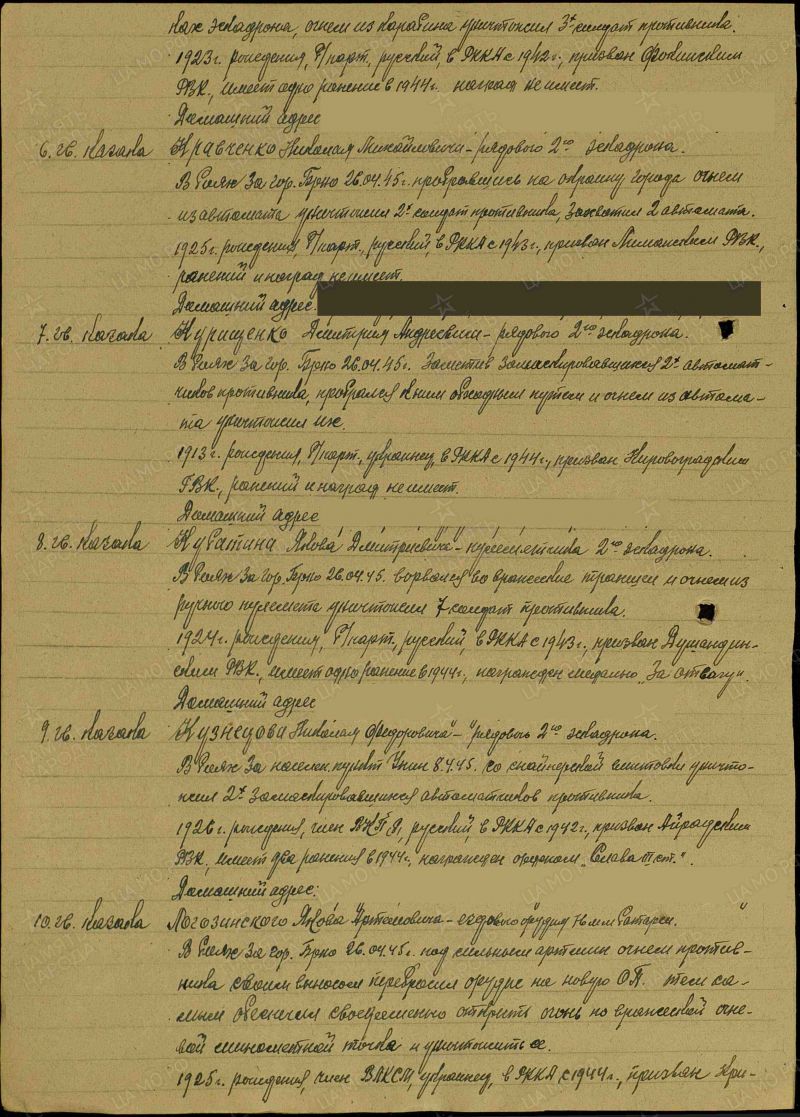 ках эскадрона, огнем из карабина уничтожил 3х солдат противника.
1923 г. рождения, б/парт, русский, в РККА с 1942 г., призван Фокинским
РВК., имеет одно ранение в 1944 г. наград не имеет.
Домашний адрес
6. гв. казака Кравченко Николая Михайловича - рядового 2го эскадрона.
В боях за гор. Брно 26.04.45 г. пробравшись на окраину города огнем
из автомата уничтожил 2х солдат противника, захватил 2 автомата.
1925 г. рождения, б/парт., русский, в РККА с 1943 г., призван Лиманским РВК.,
ранений и наград не имеет.
Домашний адрес.
7. гв. казака Курищенко Дмитрия Андреевича - рядового 2го эскадрона.
В боях за гор. Брно 26.04.45 г. Заметив замаскировавшихся 2х автомат-
чиков противника, пробрался к ним обходным путем и огнем из автома-
та уничтожил их.
1913 г. рождения, б/парт., украинец, в РККА с 1944 г., призван Кировоградским
ГВК., ранений и наград не имеет.
Домашний адрес
8. гв. казака Кубатина Якова Дмитриевича - пулеметчика 2го эскадрона.
В боях за гор. Брно 26.04.45. ворвался во вражеские траншеи и огнем из
ручного пулемета уничтожил 7 солдат противника.
1924 г. рождения, б/парт, русский, в РККА с 1943 г., призван Душандин-
ским РВК., имеет одно ранение в 1944 г., награжден медалью „За отвагу".
Домашний адрес
9. гв. казака Кузнецова Николая Федоровича - рядового 2го эскадрона.
В боях за населен. пункт Унин 8.4.45. со снайперской винтовки уничто-
жил 2х замаскировавшихся автоматчиков противника.
1926 г. рождения, член ВКПб, русский, в РККА с 1942 г., призван
РВК., имеет два ранения в 1944 г., награжден орденом „Слава III ст.".
Домашний адрес:
10. гв. казака Логозинского Якова Артемовича - ездового орудия батареи.
В боях за гор. Брно 26.04.45 г. под сильным артмин огнем против-
ника своим выносом перебросил орудие на новую ОП. тем са-
мым обеспечил своевременно открыть огонь по вражеской огне-
вой минометной точке и уничтожить ее.
1925 г. рождения, член ВЛКСМ, украинец, в РККА с 1944 г., призван Кри-